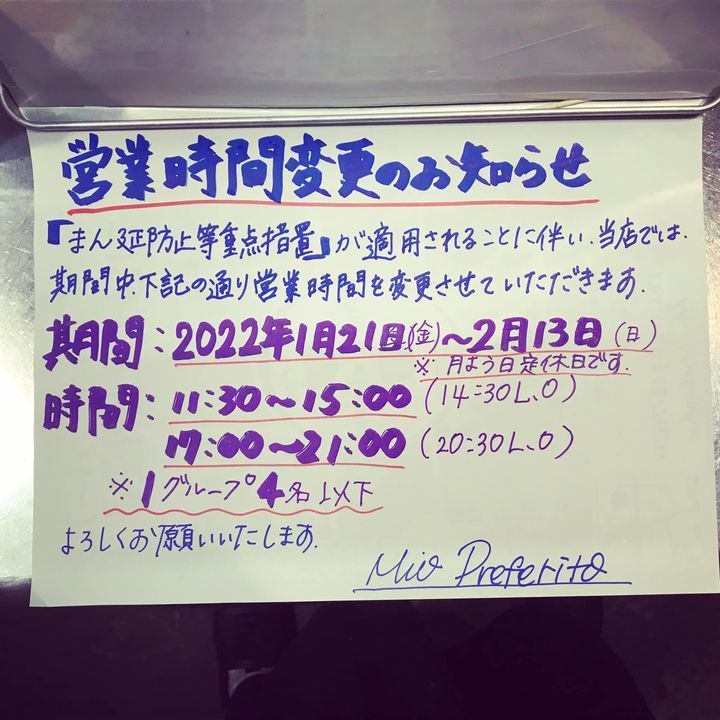 営業時間変更のお知らせ
「まん延防止等重点措置」が適用されることに伴い、当店では、
期間中、下記の通り営業時間を変更させていただきます。
期間：2022年1月21日(金)～2月13日(日)
※月よう日定休日です。
時間：11:30～15:00(14:30L.O)
17:00～21:00(20:30L.O)
※1グループ4名以下
よろしくお願いいたします。
Mio Preferito